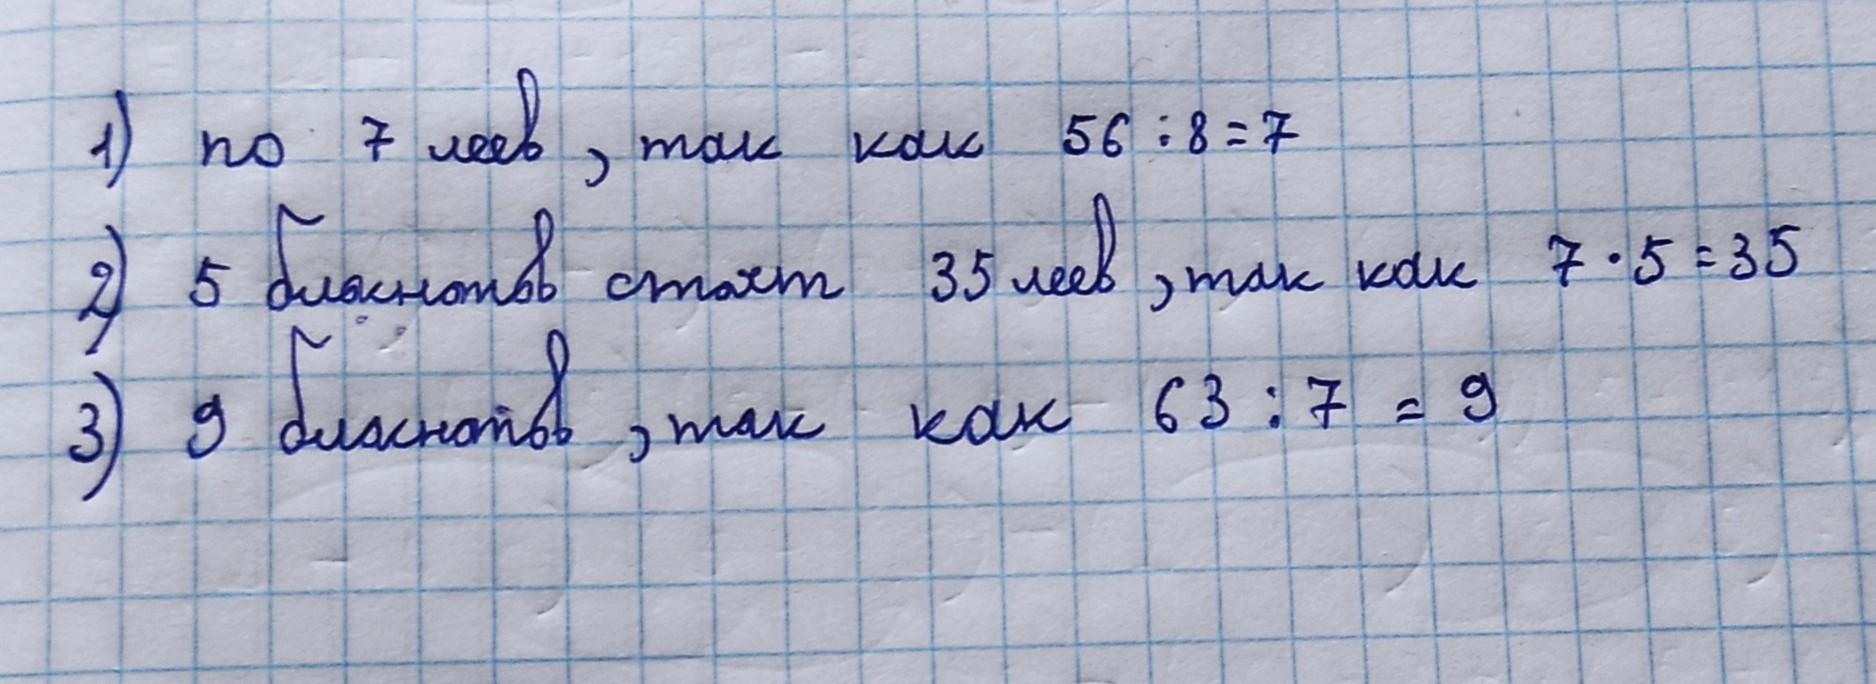 1) по 7 леев, так как 56:8=7
2) 5 блокнотов стоят 35 леев, так как 7·5=35
3) 9 блокнотов, так как 63:7=9